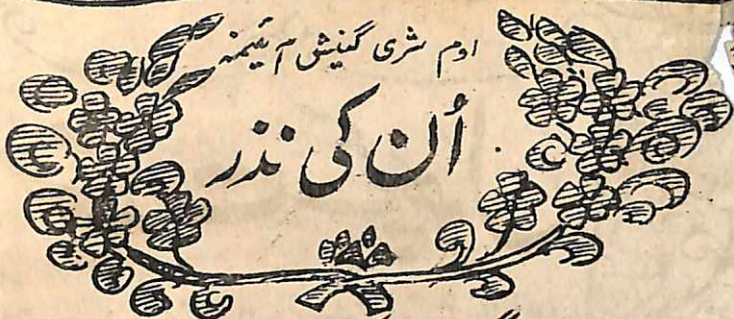 اوم شری گنیش آئیمنہ
اُن کی نذر